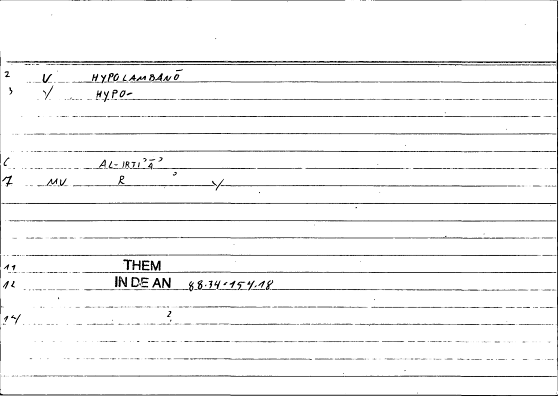 2 V HYPOLAMBANŌ
3 Y HYPO-
6 AL-IRTIʾĀʾ
7 MV R ʾ Y
11 THEM
12 IN DE AN 88.34-154.18
14 2